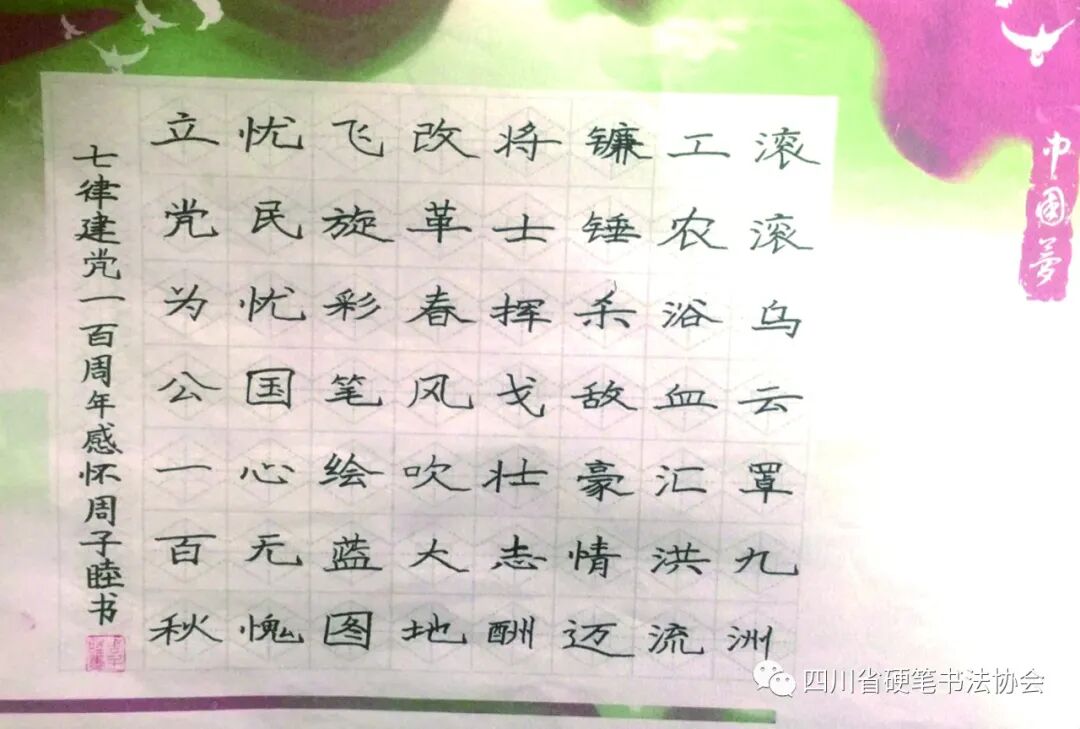 中国梦
滚滚乌云罩九洲
工农浴血汇洪流
镰锤杀敌豪情迈
将士挥戈壮志酬
改革春风吹大地
飞旋彩笔绘蓝图
忧民忧国心无愧
立党为公一百秋
七律建党一百周年感怀周子睦书
四川省硬笔书法协会